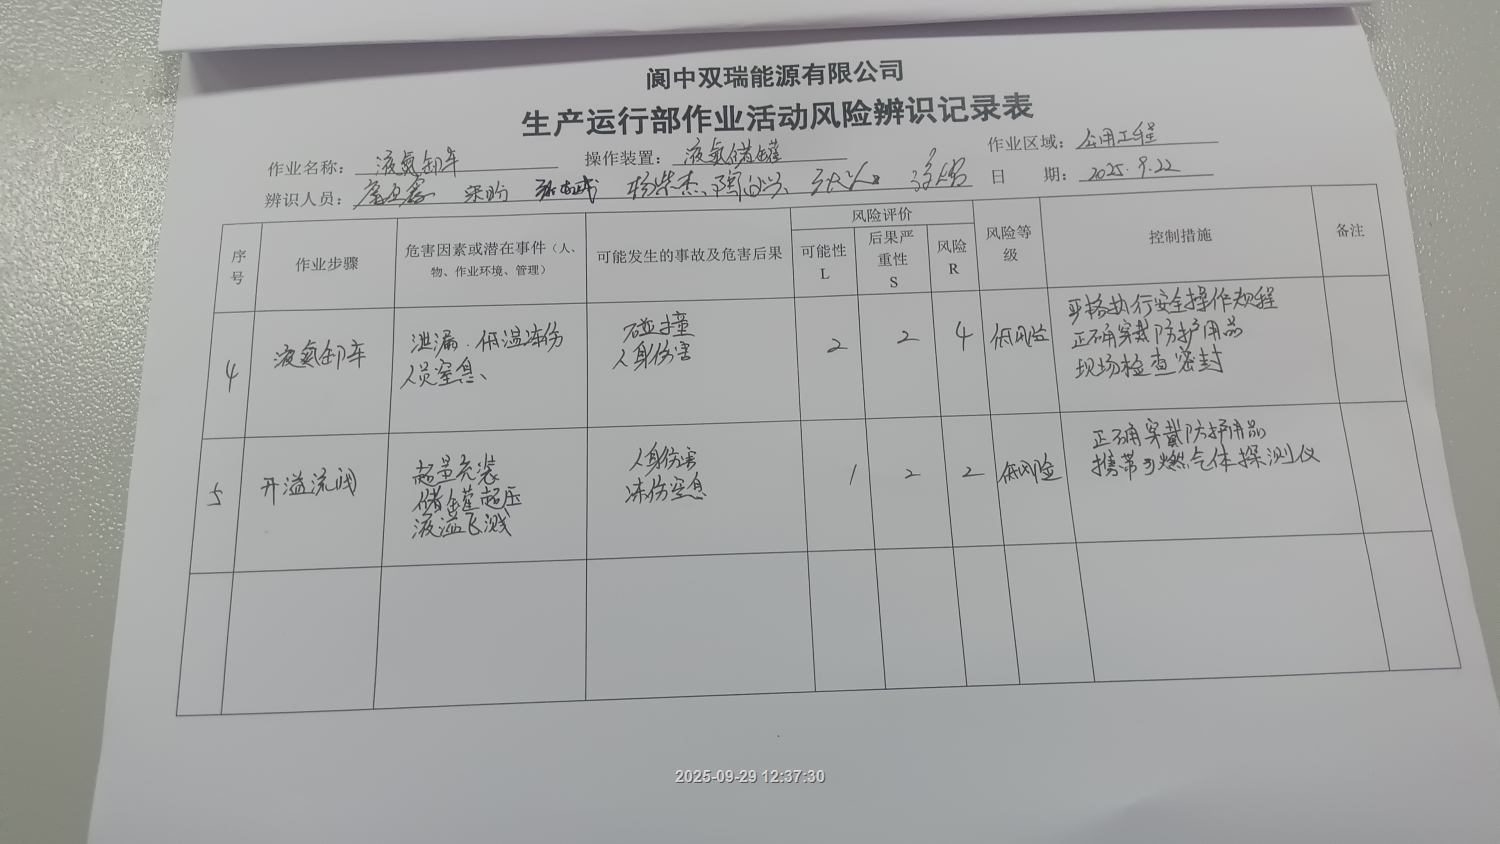 阆中双瑞能源有限公司
生产运行部作业活动风险辨识记录表
作业名称： 液氮卸车 操作装置： 液氮储罐 作业区域： 公用工程
辨识人员： 梁盼 杨柴杰、 日 期： 2025.9.22
序号 作业步骤 危害因素或潜在事件（人、物、作业环境、管理） 可能发生的事故及危害后果 风险评价 风险等级 控制措施 备注
可能性 L 后果严重性 S 风险 R
4 液氮卸车 泄漏、低温冻伤 碰撞 2 2 4 低风险 严格执行安全操作规程
人员窒息、 人身伤害 正确穿戴防护用品
现场检查密封
5 开溢流阀 超量充装 人身伤害 1 2 2 低风险 正确穿戴防护用品
储罐超压 冻伤窒息 携带可燃气体探测仪
液溢飞溅
2025-09-29 12:37:30